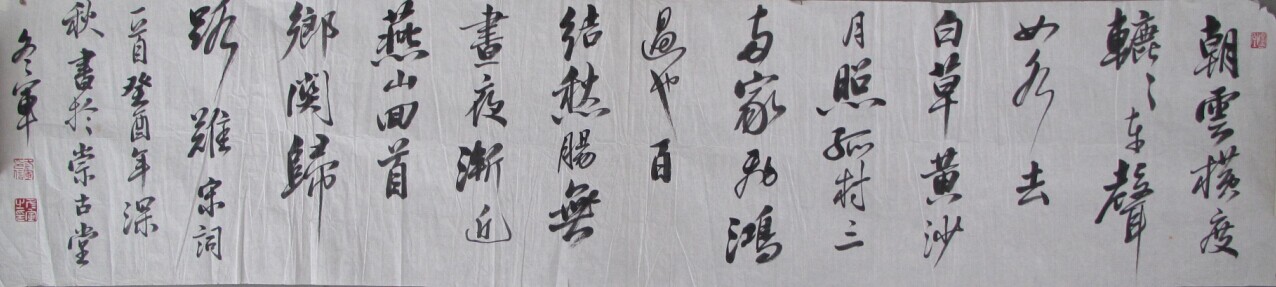 朝雲横度
轆々车聲
如水去
白草黄沙
月照孤村三
两家飛鴻
過也百
結愁腸無
晝夜漸近
燕山回首
鄉關歸
路難宋詞
一首癸酉年深
秋書於崇古堂
冬軍